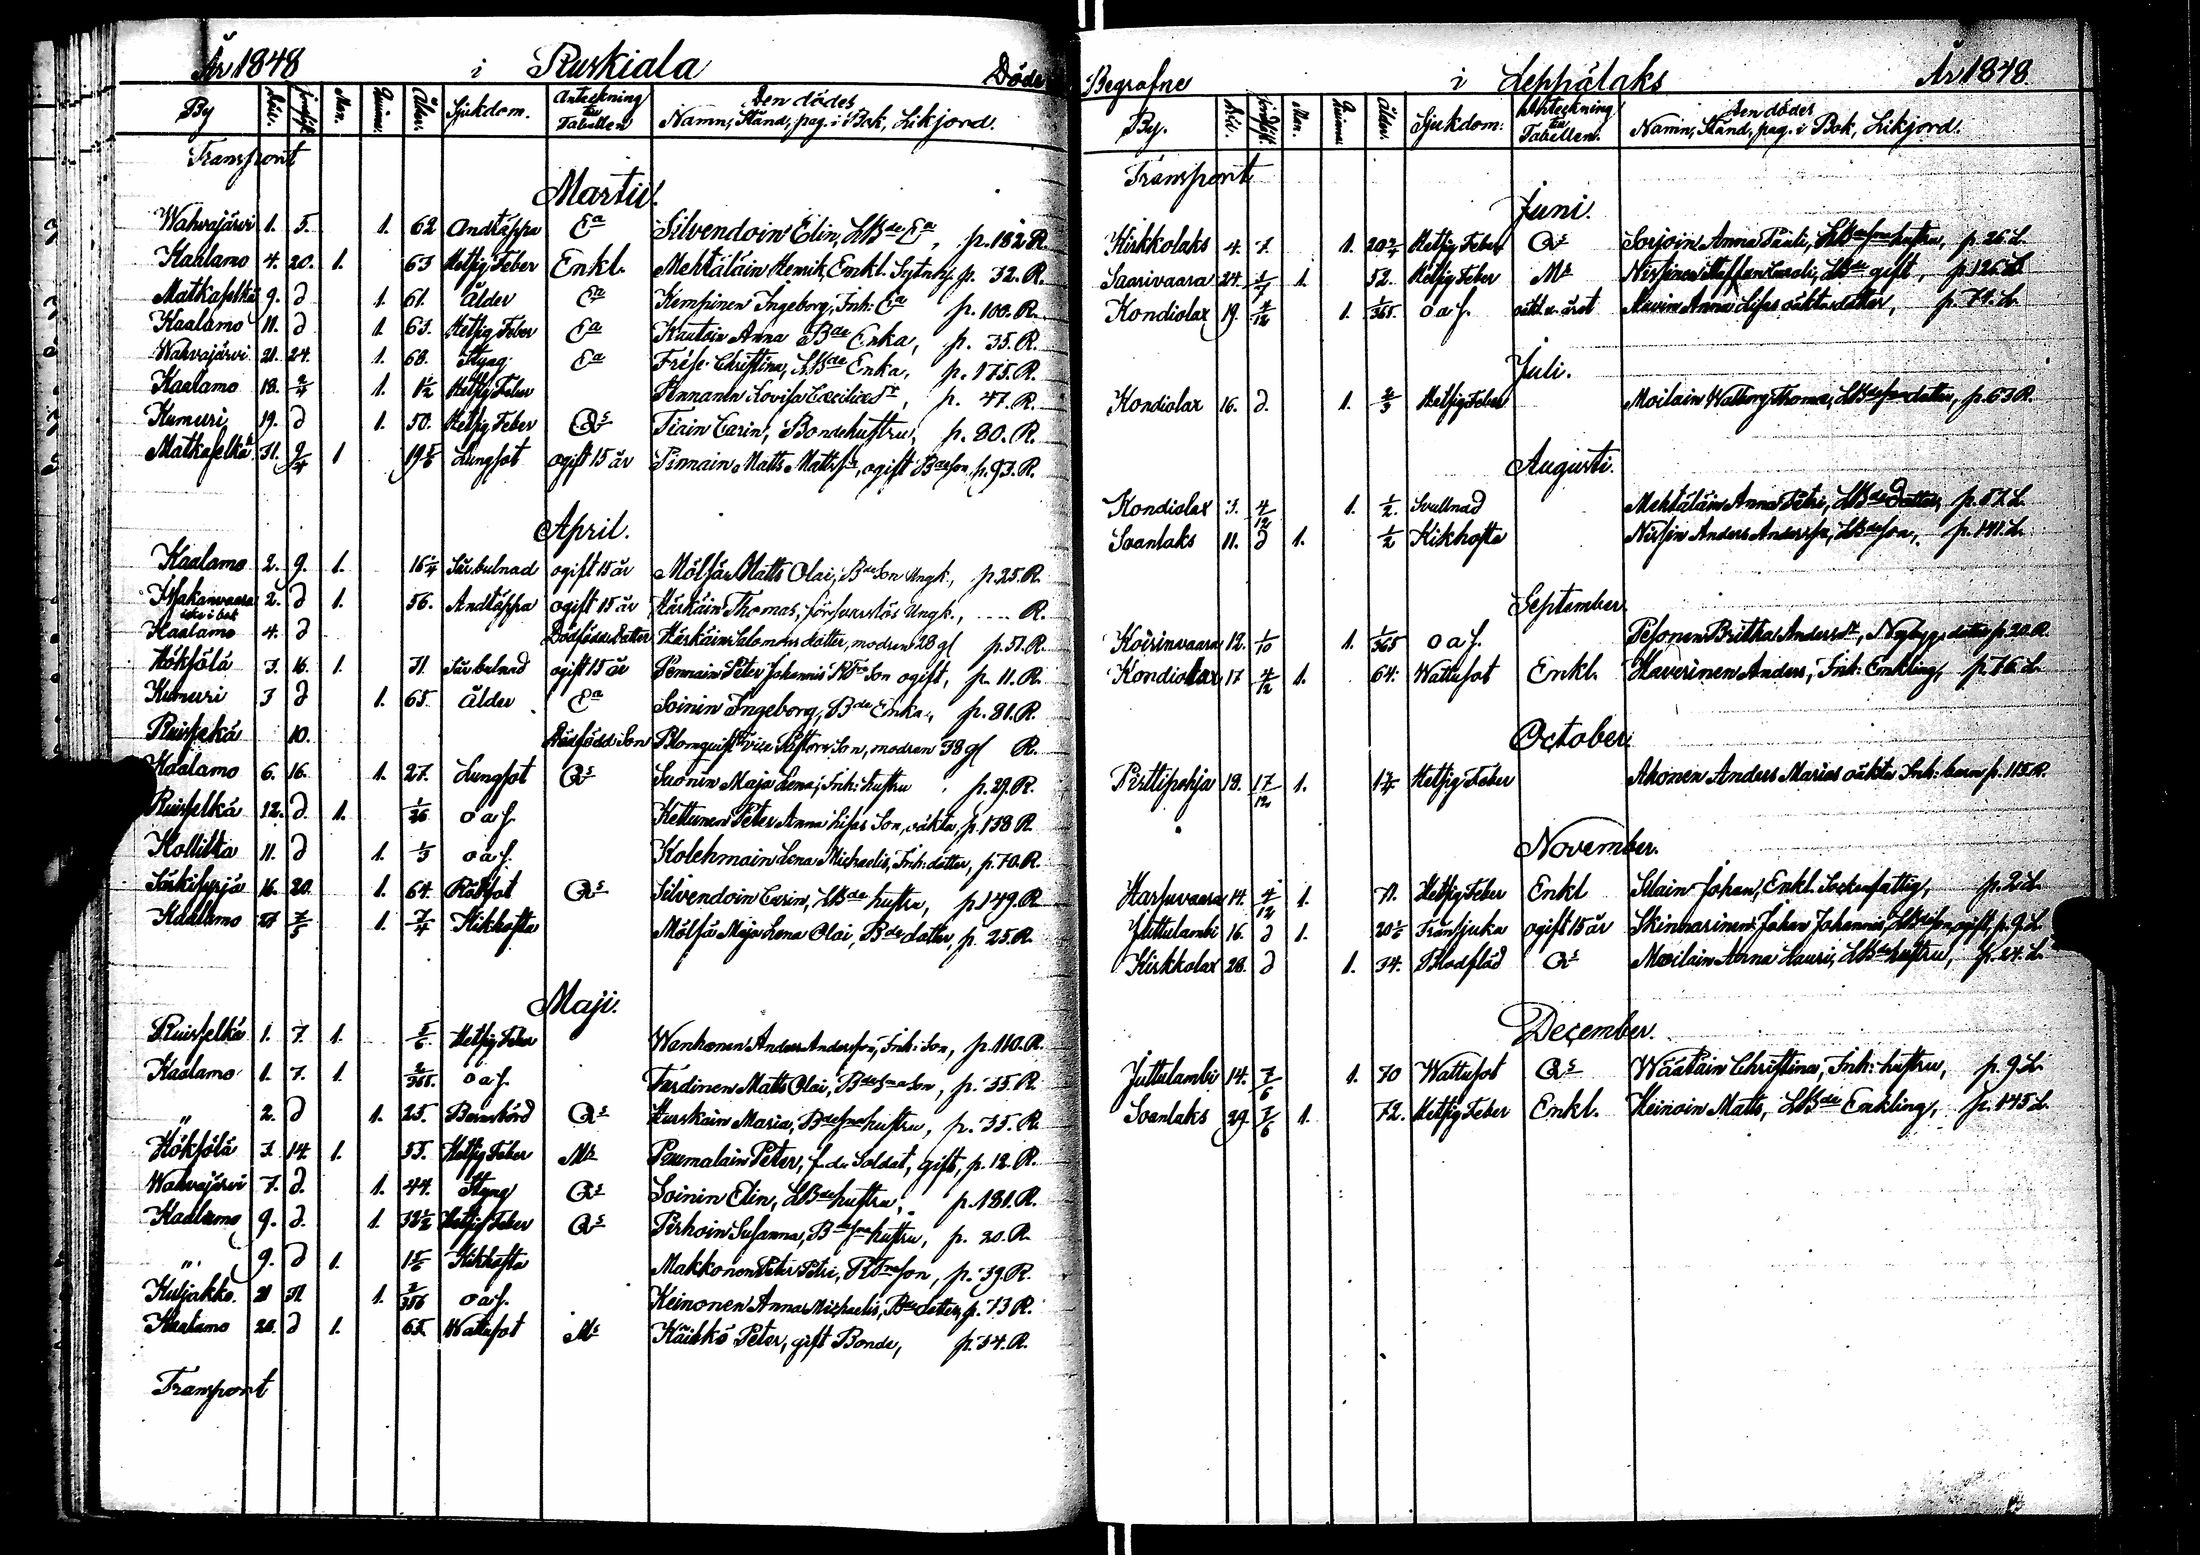 År 1848 i Ruskiala Döde
By Död. jordfäst. Mn. Quinn. Ålder Sjukdom. Anteckning till Tabellen Den dödes Namn, Stånd, pag. i Bok, Likjord.
Transport
Martii.
Wahvajärvi 1. 5. 1. 62 Andtäppa Ea Silvendoin Elin, LBde Ea, p. 182 R.
Kaalamo 4. 20. 1. 63 Hetsig Feber Enkl. Mehtäläin Henrik, Enkl. Sytning p. 32. R.
Matkaselkä 9. d 1. 61. Ålder Ea Kempinen Ingeborg, Inh: Ea p. 100. R.
Kaalamo 11. d 1. 63. Hetsig Feber Ea Kautoin Anna Bde Enka, p. 35. R.
Wahvajärvi 21. 24. 1. 68. Styng Ea Frése Christina, LBde Enka, p. 175. R.
Kaalamo 18. 2/4 1. 1½ Hetsig Feber Hennanen Lovisa Cæcilia, p. 47. R.
Kumuri 19. d 1. 50. Hetsig Feber Qs Tiain Carin, Bondehustru, p. 80. R.
Matkaselkä 31. 9/4 1 19 Lungsot ogift 15 år Pinnain Matts Matts, ogift Bdeson p. 93. R.
April.
Kaalamo 2. 9. 1. 16¼ Sårbulnad ogift 15 år Mölsä Matts Olai, Bde Son Ungk., p. 25. R.
2. d 1. 56. Andtäppa ogift 15 år Härkäin Thomas, försvarslös Ungk., .... R.
Kaalamo 4. d Dödfödd Dotter Härkäin Salomons dotter, modren 28 gl p. 51. R.
Höksölä 3. 16. 1. 31 Sårbulnad ogift 15 år Pennain Peter Johannis Son ogift, p. 11. R.
Kumuri 3 d 1. 65. Ålder Ea Soinin Ingeborg, Bde Enka, p. 81. R.
Ruisselkä 10. Dödfödd Son Blomquist vice Pastors Son, modren 38 gl R.
Kaalamo 6. 16. 1. 27. Lungsot Qs Suonin Maja Lena, Inh: hustru p. 29. R.
Ruisselkä 12. d. 1. 1/26 o a f. Kettunen Peter Anna Lisas Son, oäkta, p. 138 R.
Kollitta 11. d 1. 1/3 o a f. Kolehmain Lena Michaelis, Inh: dotter, p. 70. R.
Särkisyrjä 16. 20. 1. 64. Rödsot Qs Silvendoin Carin, LBde hustru, p. 149. R
Kaalamo 27 7/5 1. 7/4 Kikhosta Mölsä Maja Lena Olai, Bde dotter, p. 25. R.
Maji.
Ruisselkä 1. 7. 1. 5/6 Hetsig Feber Wanhanen Anders Andersson, Inh: Son, p. 110. R.
Kaalamo 1. 7. 1. 2/365. o a f. Tardinen Matts Olai, Bdesna Son, p. 35. R.
" 2. d 1. 25. Barnsbörd Qs Hurskain Maria, Bdesna hustru, p. 35. R.
Höksölä 3. 14. 1. 53. Hetsig Feber Ms Puumalain Peter, f. du Soldat, gift, p. 12. R.
Wahvajärvi 7. d. 1. 44. Styng Qs Soinin Elin, LBde hustru, p. 181. R.
Kaalamo 9. d. 1. 32½ Hetsig Feber Qs Pirhoin Susanna, Bdesna hustru, p. 20. R.
" 9. d 1. 1 Kikhosta Makkonen Peter Petri, son, p. 39. R.
Kuljakko. 21 31 1. 3/366 o a f. Keinonen Anna Michaelis, Bde dotter, p. 73 R.
Kaalamo 20. d 1. 65. Wattusot Ms Käikkö Peter, gift Bonde, p. 54. R.
Transport
Begrafne i Leppälaks År 1848
By. Död. jordfäst. Mn. Quinn Ålder Sjukdom: Anteckning till Tabellen. Den dödes Namn, Stånd, pag. i Bok, Likjord.
Transport
Juni.
Kirkkolaks 4. 7. 1. 20 Hetsig Feber Qs Sorjoin Anna Pauli, LBdesna hustru, p. 26. L.
Saarivaara 24. 1. 52. Hetsig Feber Ms Nissinen Staffan Caroli, LBde gift, p. 126. L.
Kondiolax 19. 4/12 1. 1/365. o a f. Anna Lisas oäkta dotter, p. 71. L.
Juli.
Kondiolax 16. d. 1. 2/3 Hetsig Feber Moilain Walborg Thomæ, LBdesna dotter, p. 63 R.
Augusti.
Kondiolax 3. 4/12 1. ½. Svullnad Mehtäläin Anna Petri, LBde Dotter, p. 57. L.
Soanlaks 11. d 1. ½ Kikhosta Nissin Anders Anderss, LBdeson, p. 141. L.
September.
Koirinvaara 12. 1/10 1. 1/365 o a f. Pesonen Britha Anders, Nybygg. dotter p. 20. R.
Kondiolax 17 4/12 1. 64. Wattusot Enkl. Haverinen Anders, Inh: Enkling, p. 76. L.
October.
Pirttipohja 18. 17/12 1. 1¼ Hetsig Feber Ahonen Anders Marias oäkta Inh: barn p. 115. R.
November.
Harsuvaara 14. 4/12 1. 71. Hetsig Feber Enkl Silain Johan, Enkl. Sockenfattig, p. 2. L.
Juttulambi 16. d 1. 20 Fransjuka ogift 15 år Skinnarinen Johan Johannis, LBdeson, ogift, p. 9. L.
Kirkkolax 28. d 1. 34. Blodflöd Qs Moilain Anna Lauri, LBde hustru, p. 24. L.
December.
Juttulambi 14. 7/6 1. 70 Wattusot Qs Wäätäin Christina, Inh: hustru, p. 9. L.
Soanlaks 29. 7/6 1. 72. Hetsig Feber Enkl. Keinoin Matts, LBde Enkling, p. 145 L.